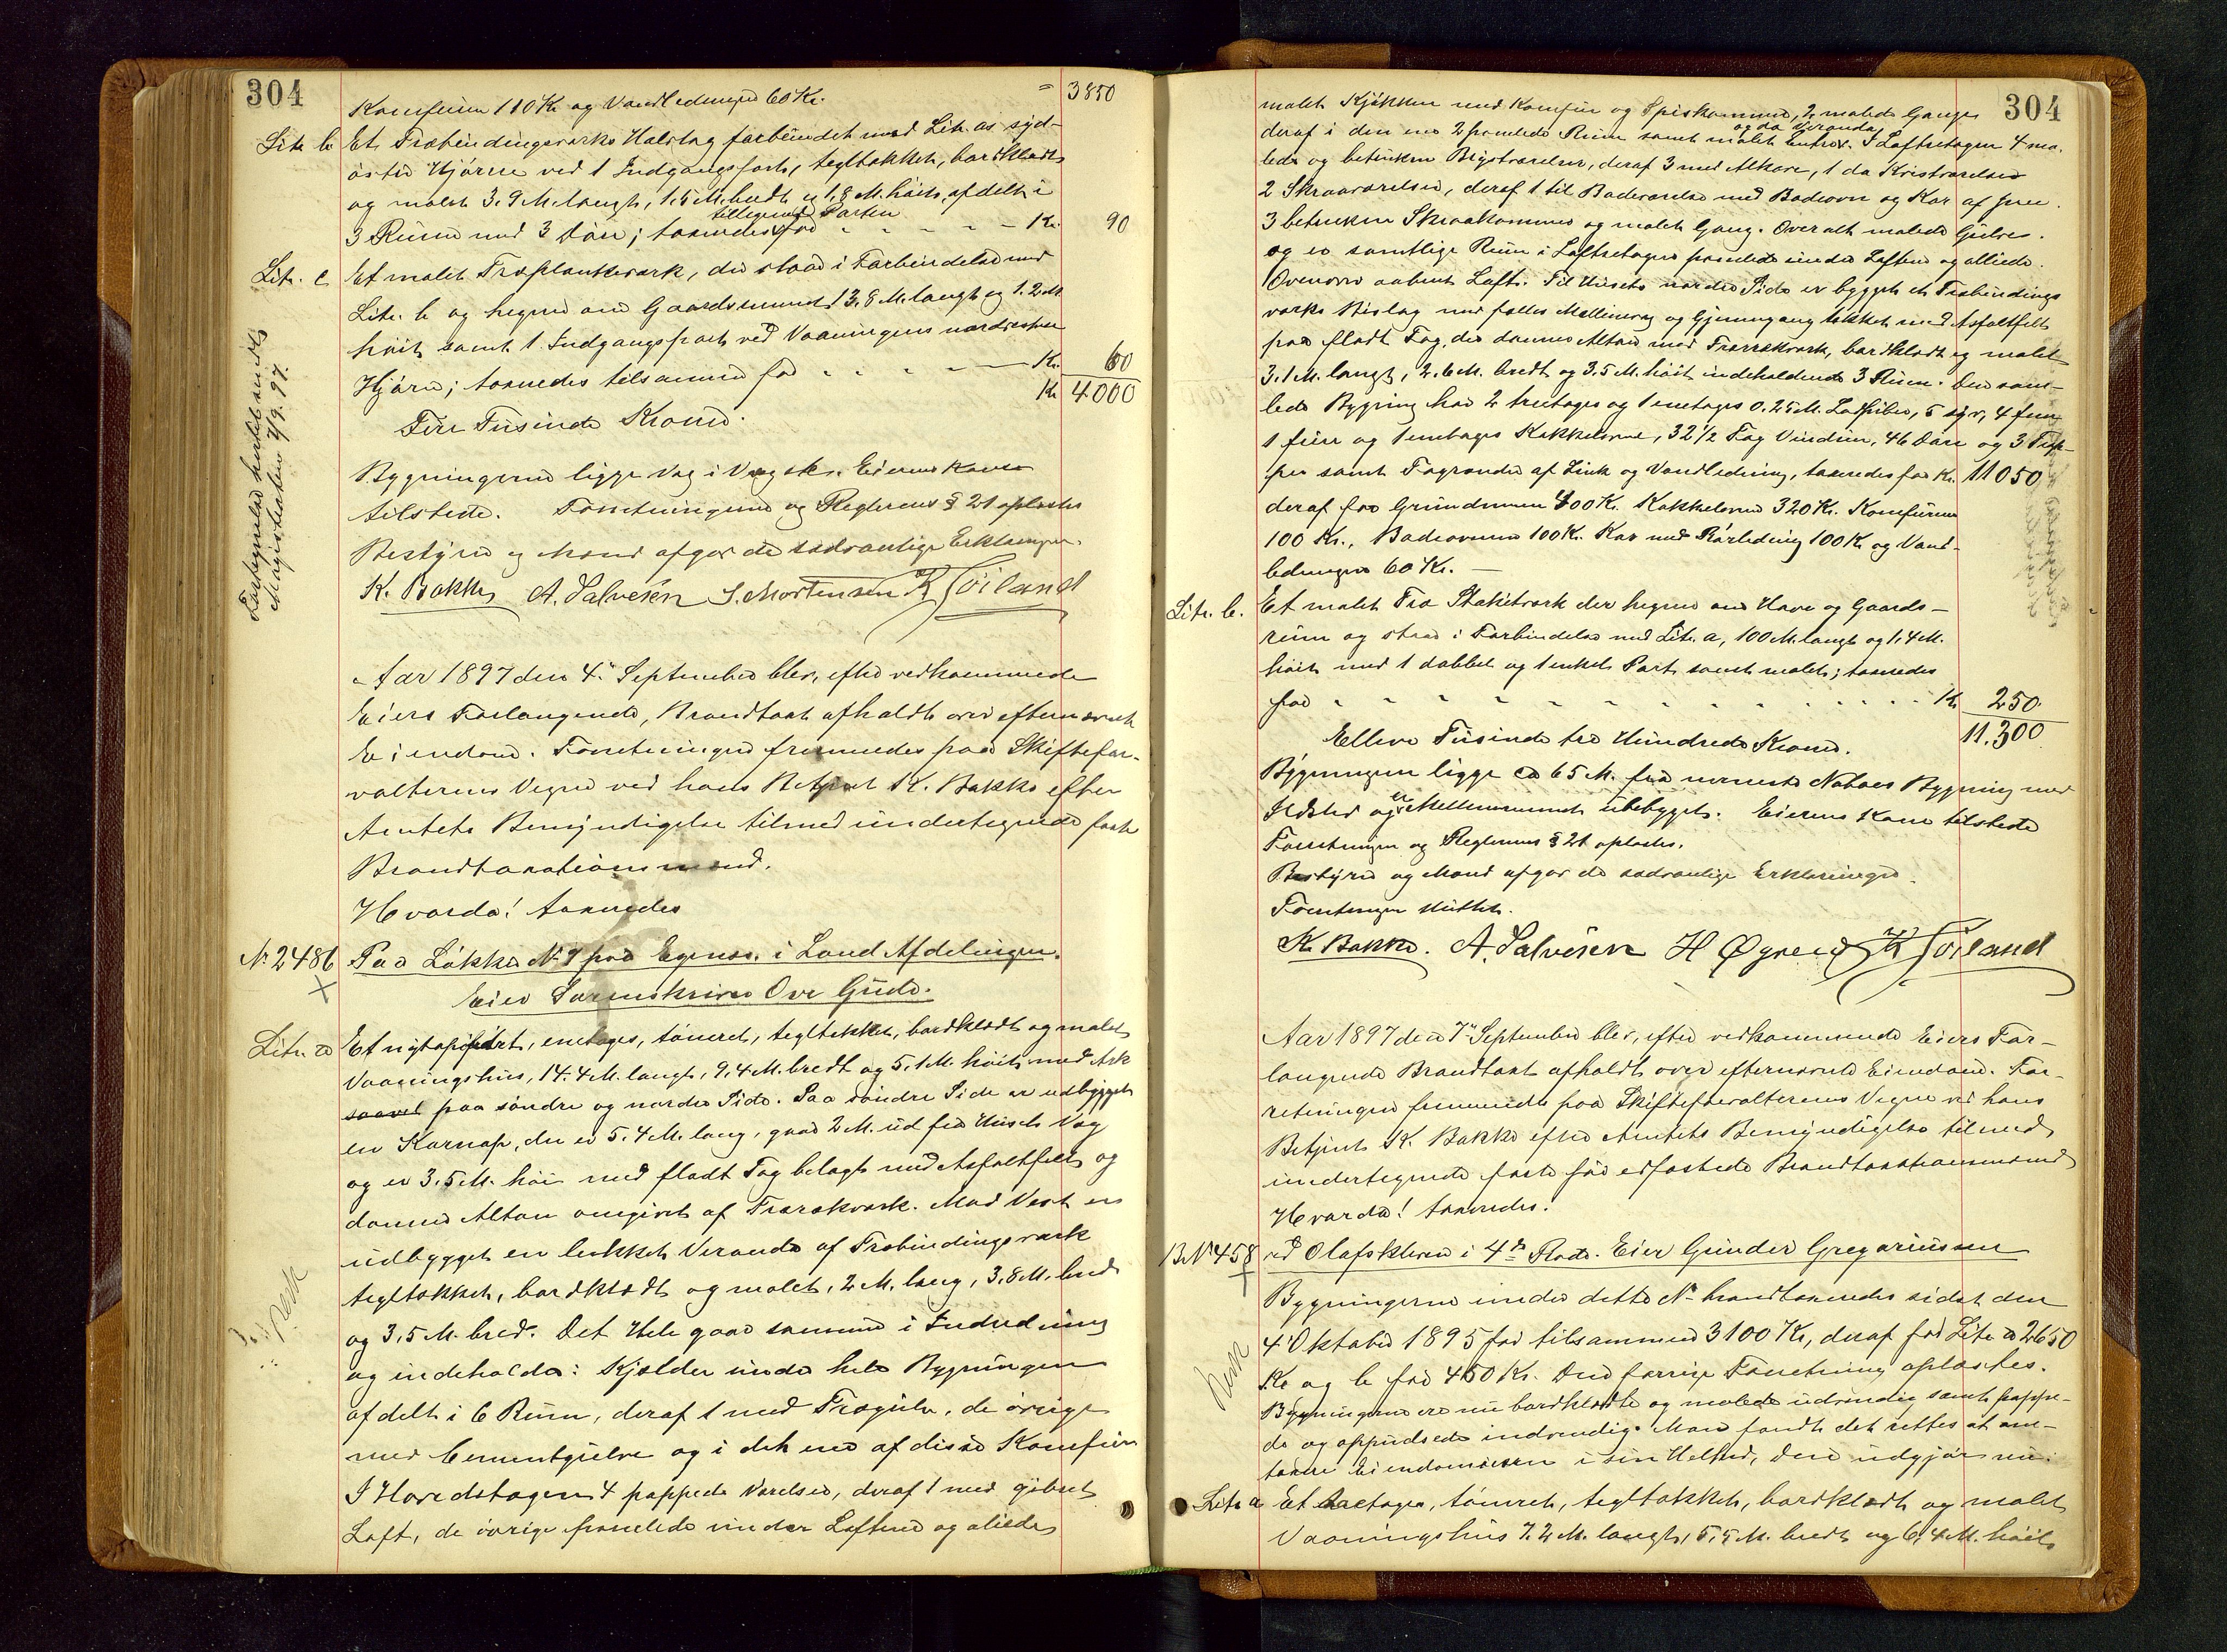 304
Komfuren 110 Kr og Vandledningen 60 Kr. = 3850
Litr. b Et Træbindingsværks Halvtag forbundet med Litr. a's syd-
østre Hjørne ved 1 Indgangsport, tegltækket, bordklædt
og malet 3.9 M. langt, 1.5 M. bredt og 1.8 M. høit, afdelt i
tilligemed Porten
3 Rum med 3 Døre; taxeredes for - - - - - Kr. 90
Litr. c Et malet Træplankeværk, der staar i Forbindelse med
Litr. b og hegner om Gaardsrummet 13.8 M. langt og 1.2 M.
høit samt 1 Indgangsport ved Vaaningens nordvestre
Hjørne; taxeredes tilsammen for - - - - - Kr. 60
Kr 4000
Fire Tusinde Kroner.
Bygningerne ligge Væg i Væg etc. Eierens Kone
tilstede. Forretningen og Reglernes § 21 oplæstes
Bestyrer og Mænd afgav de sædvanlige Erklæringer.
K. Bakke A. Salvesen S. Mortensen K Høiland
Fortegnelse hertil sendt
Magistraten 7/9. 97.
Aar 1897 den 4. September blev, efter vedkommende
Eiers Forlangende, Brandtaxt afholdt over efternævnte
Eiendom. Forretningen fremmedes paa Skiftefor-
valterens Vegne ved hans Betjent K. Bakke efter
Amtets Bemyndigelse tilmed undertegnede faste
Brandtaxationsmænd.
Hvorda! taxeredes
No 2486 Paa Løkke No 7 paa Egenæs i Land Afdelingen.
Eier Sorenskriver Ove Gude.
Litr. a Et nytopført, enetages, tømret, tegltækket, bordklædt og malet
Vaaningshus, 14.4 M. langt, 9.4 M. bredt og 5.1 M. høit, med Ark
saavel paa søndre og nordre Side. Paa søndre Side er udbygget
en Karnap, der er 5.4 M. lang, gaar 2 M. ud fra Husets Væg
og er 3.5 M. høi med fladt Tag belagt med Asfaltfilt og
danner Altan omgivet af Trærækværk. Mod Vest er
udbygget en lukket Veranda af Træbindingsværk
tegltækket, bordklædt og malet, 2 M. lang, 3.8 M. bred
og 3.5 M. bred. Det Hele gaar sammen i Indredning
og indeholder: Kjælder under hele Bygningen
afdelt i 6 Rum, deraf 1 med Trægulv, de øvrige
med Cementgulve og i det ene af disse Komfur
I Hovedetagen 4 pappede Værelser, deraf 1 med gibset
Loft, de øvrige panelede under Loftene og oliede
304
malet Kjøkken med Komfur og Spiskammer, 2 malede Gange
og do Veranda
deraf i den ene 2 panelede Rum samt malet Entree. I Loftsetagen 4 ma-
lede og betrukne Kvistværelser, deraf 3 med Alkove, 1 do Kvistværelse
2 Skraaværelser, deraf 1 til Badeværelse med Badeovn og Kar af
3 betrukne Skraakammer og malet Gang. Overalt malede Gulve.
og er samtlige Rum i Loftsetagen panelede under Loftene og oliede.
Ovenover aabent Loft. Til Husets nordre Side er bygget et Træbindings
værks Bislag med fælles Mellemvæg og Gjennemgang tækket med Asfaltfilt
paa fladt Tag, der danner Altan med Trærækværk, bordklædt og malet
3.1 M. langt, 2.6 M. bredt og 3.5 M. høit indeholdende 3 Rum. Den sam-
lede Bygning har 2 treetages og 1 enetages 0.25 M. Ludpiber, 5 syv, 4 fem
1 fire og 1 enetages Kakkelovne, 32 1/2 Fag Vinduer, 46 Døre og 3 Trap-
per samt Tagrender af Zink og Vandledning, taxeredes for Kr. 11050
deraf for Grundmuren 400 Kr. Kakkelovne 320 Kr. Komfurerne
100 Kr., Badeovnen 100 Kr. Kar med Rørledning 100 Kr og Vand-
ledningen 60 Kr. —
Litr. b. Et malet Træ Stakitværk der hegner om Have og Gaards-
rum og staar i Forbindelse med Litr. a, 100 M. langt og 1.4 M.
høit med 1 dobbel og 1 enkel Port samt malet; taxeredes
for - - - - - - - - - Kr 250.
11.300
Elleve Tusinde tre Hundrede Kroner.
Bygningen ligger ca 65 M. fra nærmeste Naboes Bygning med
Ildsted og er Mellemrummet ubebygget. Eierens Kone tilstede
Forretningen og Reglernes § 21 oplæstes.
Bestyrer og Mænd afgav de sædvanlige Erklæringer.
Forretningen sluttet.
K. Bakke. A. Salvesen H Øgreid K Høiland
Aar 1897 den 7. September blev, efter vedkommende Eiers For-
langende Brandtaxt afholdt over efternævnte Eiendom. For-
retningen fremmedes paa Skifteforvalterens Vegne ved hans
Betjent K. Bakke efter Amtets Bemyndigelse tilmed
undertegnede faste før edfæstede Brandtaxationsmænd
Hvorda! taxeredes:
B. No 458 ved Olafskleven i 4de Rode. Eier Gunder Gregoriussen
Bygningerne under dette No brandtaxeredes sidst den
4 Oktober 1895 for tilsammen 3100 Kr, deraf for Litr. a 2650
Kr og b for 450 Kr. Den forrige Forretning oplæstes.
Bygningerne ere nu bordklædte og malede udvendig samt pappe-
de og oppudsede indvendig. Man fandt det rettest at om-
taxere Eiendommen i sin Helhed, den udgjør nu:
Litr. a Et toetages, tømret, tegltækket, bordklædt og malet
Vaaningshus 7.2 M. langt, 5.5 M. bredt og 6.4 M. høit